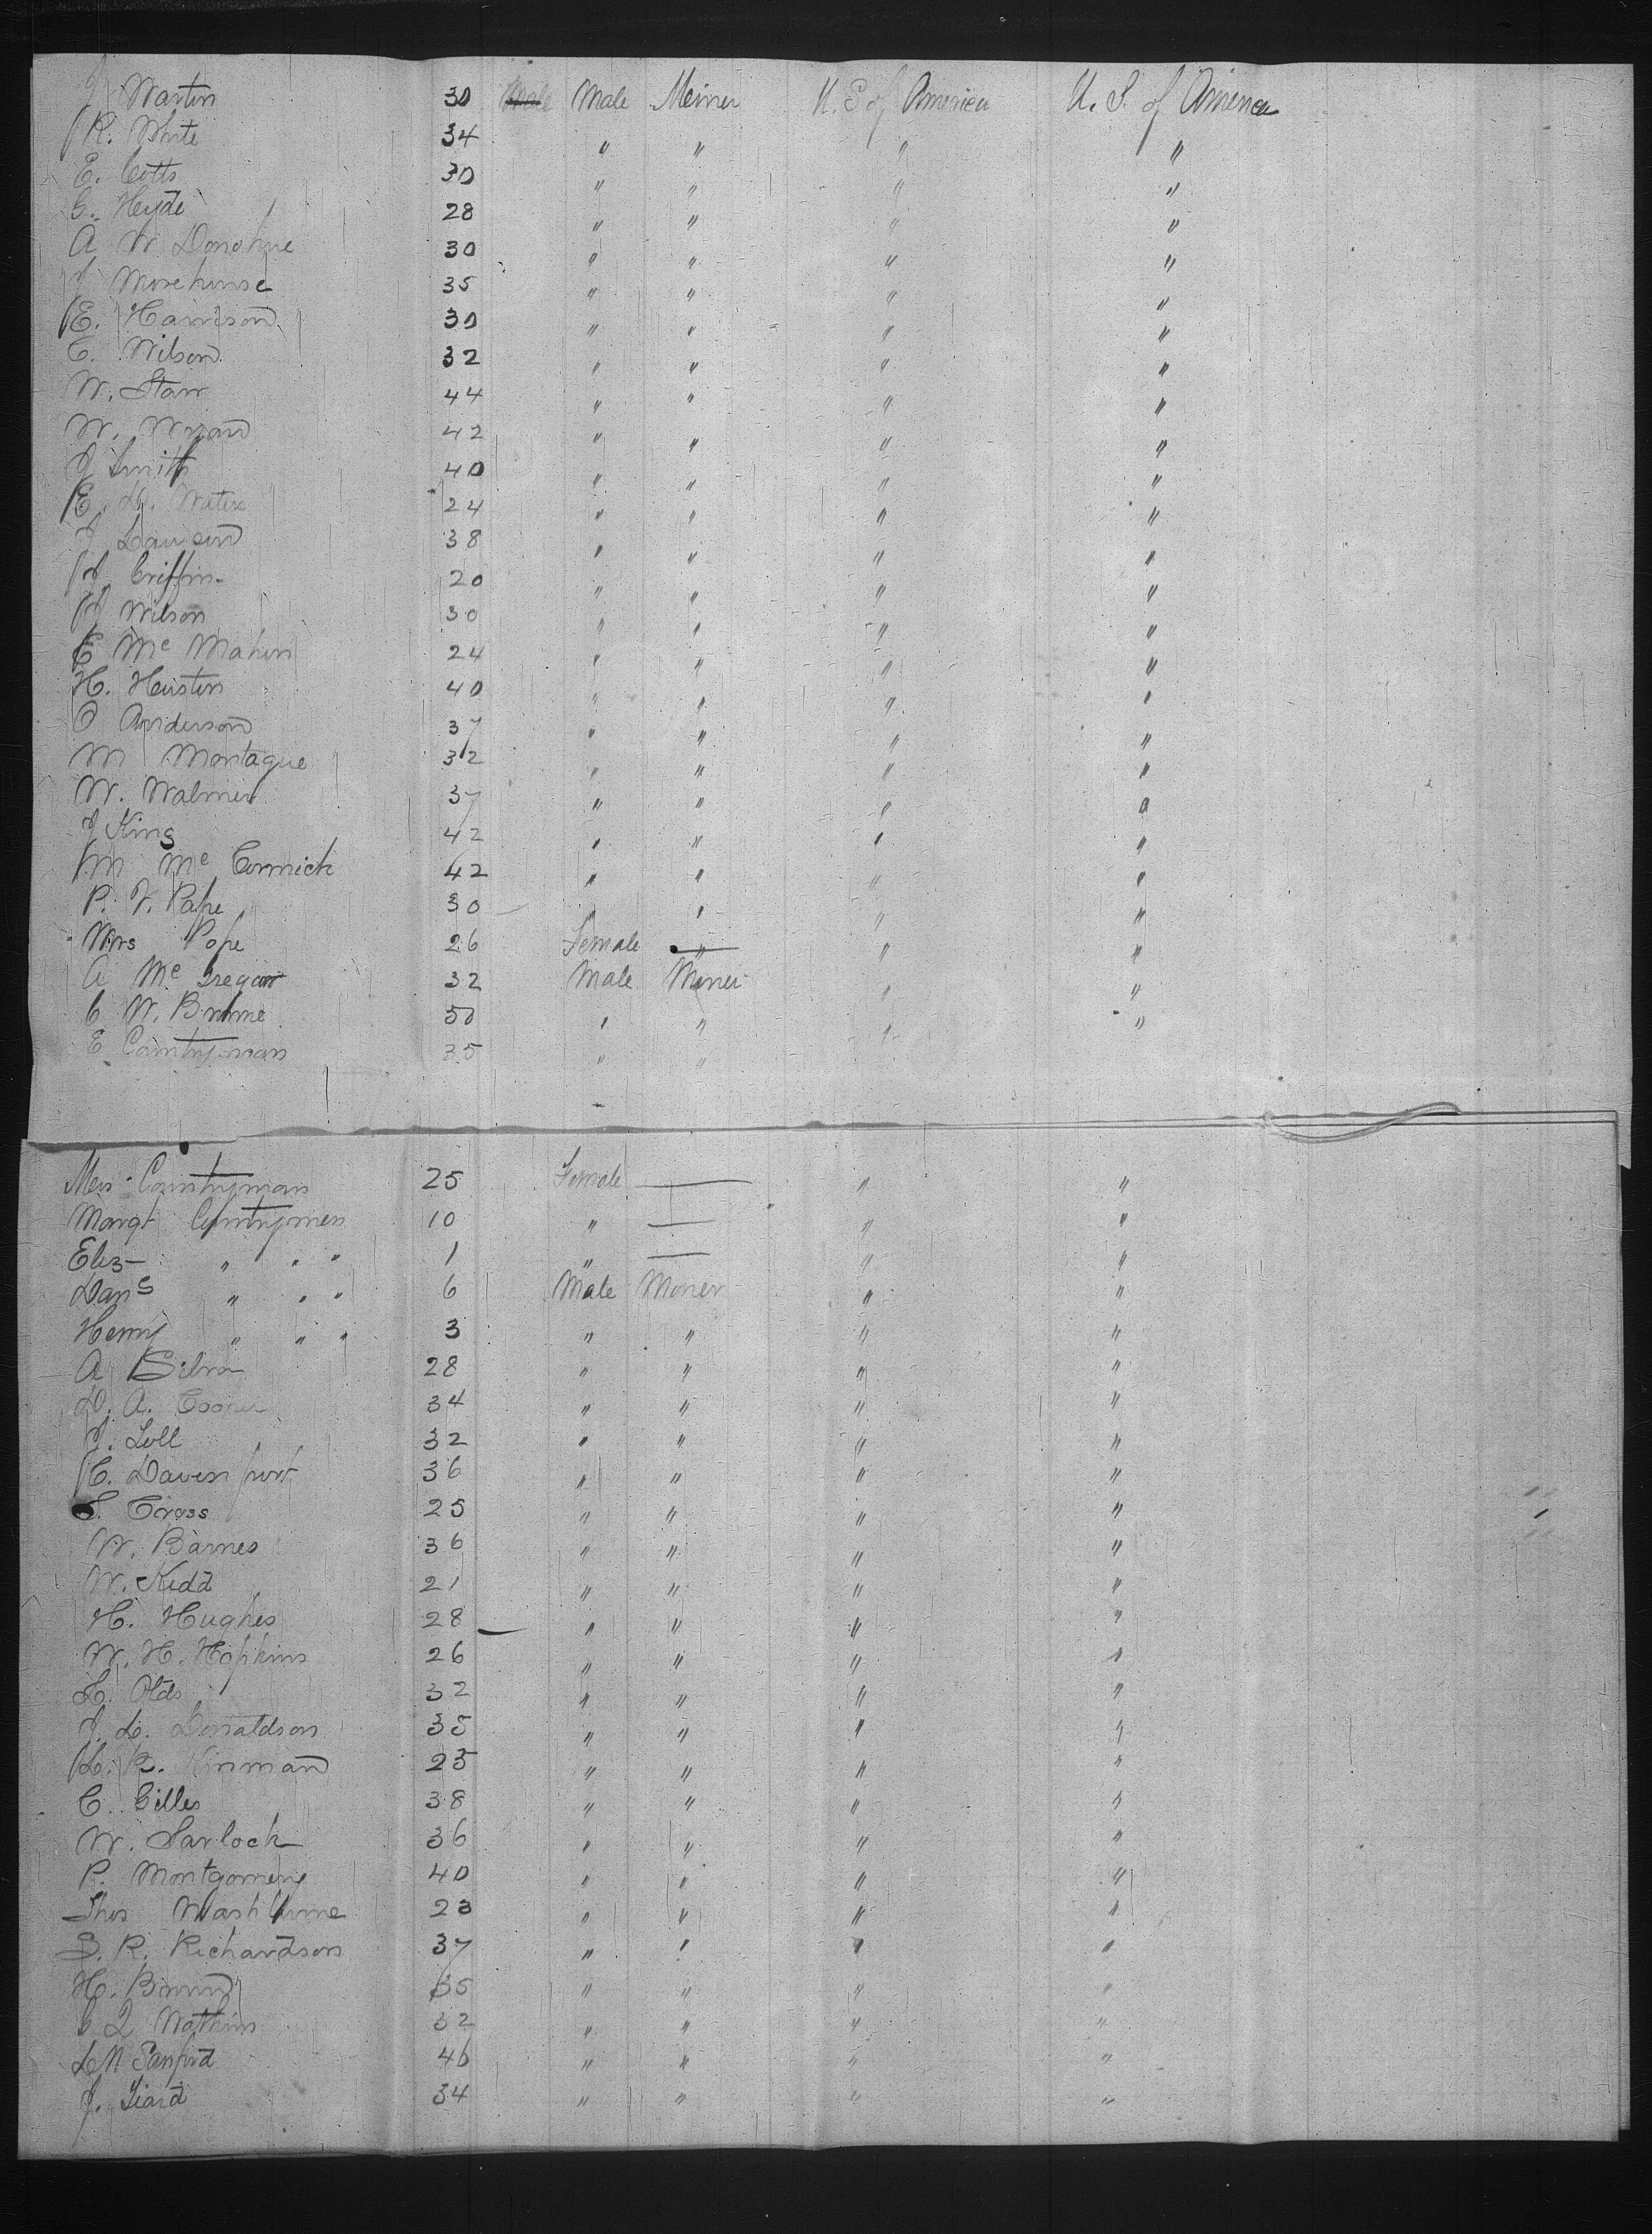 J Martin 30 Male Male Meiner U. S of America U. S. of America
R. White 34 " " " "
E. Cotts 30 " " " "
C. Hyde 28 " " " "
A W Donohue 30 " " " "
J Morehouse 35 " " " "
E. Harrison 30 " " " "
C. Wilson 32 " " " "
W. Starr 44 " " " "
W. 42 " " " "
J Smith 40 " " " "
E. D. 24 " " " "
J Dawson 38 " " " "
J Griffin 20 " " " "
J Wilson 30 " " " "
E Mc Mahon 24 " " " "
H. Huston 40 " " " "
O Anderson 37 " " " "
M Montague 32 " " " "
W. Walmer 37 " " " "
J King 42 " " " "
M Mc Cormick 42 " " " "
P. V. Pope 30 " " " "
Mrs Pope 26 Female — " " "
A Mc Gregor 32 Male Miner " "
C W. 50 " " " "
E Countryman 35 " "
Mrs Countryman 25 Female — " "
Margt Countryman 10 " — " "
Eliz " " " 1 " — " "
Danl " " " 6 Male Moner " "
Henry " " " 3 " " " "
A Silva 28 " " " "
D. A. Cooper 34 " " " "
J. Lull 32 " " " "
C. Davenport 36 " " " "
S. Cross 25 " " " "
W. Barnes 36 " " " "
W. Kidd 21 " " " "
H. Hughes 28 " " " "
W. H. Hopkins 26 " " " "
L. Olds 32 " " " "
J. L. Donaldson 35 " " " "
L. B. Kinman 25 " " " "
C. Gilles 38 " " " "
W. Sarlock 36 " " " "
P. Montgomery 40 " " " "
Thos Washburne 23 " " " "
S. R. Richardson 37 " " " "
H. Brown 35 " " " "
C Q Watkins 32 " " " "
L M Sanford 46 " " " "
J. Liard 34 " " " "